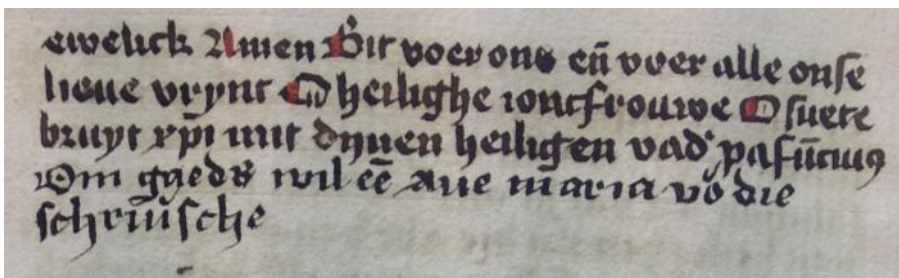 ewelick Amen Bit voer ons eñ voer alle onse
lieue vrynt O heilighe ioncfrouwe O suete
bruyt xp̄i mit dynen heiligen vad' pafūcius
Om gaeds wil ēē aue maria vō die
schriusche